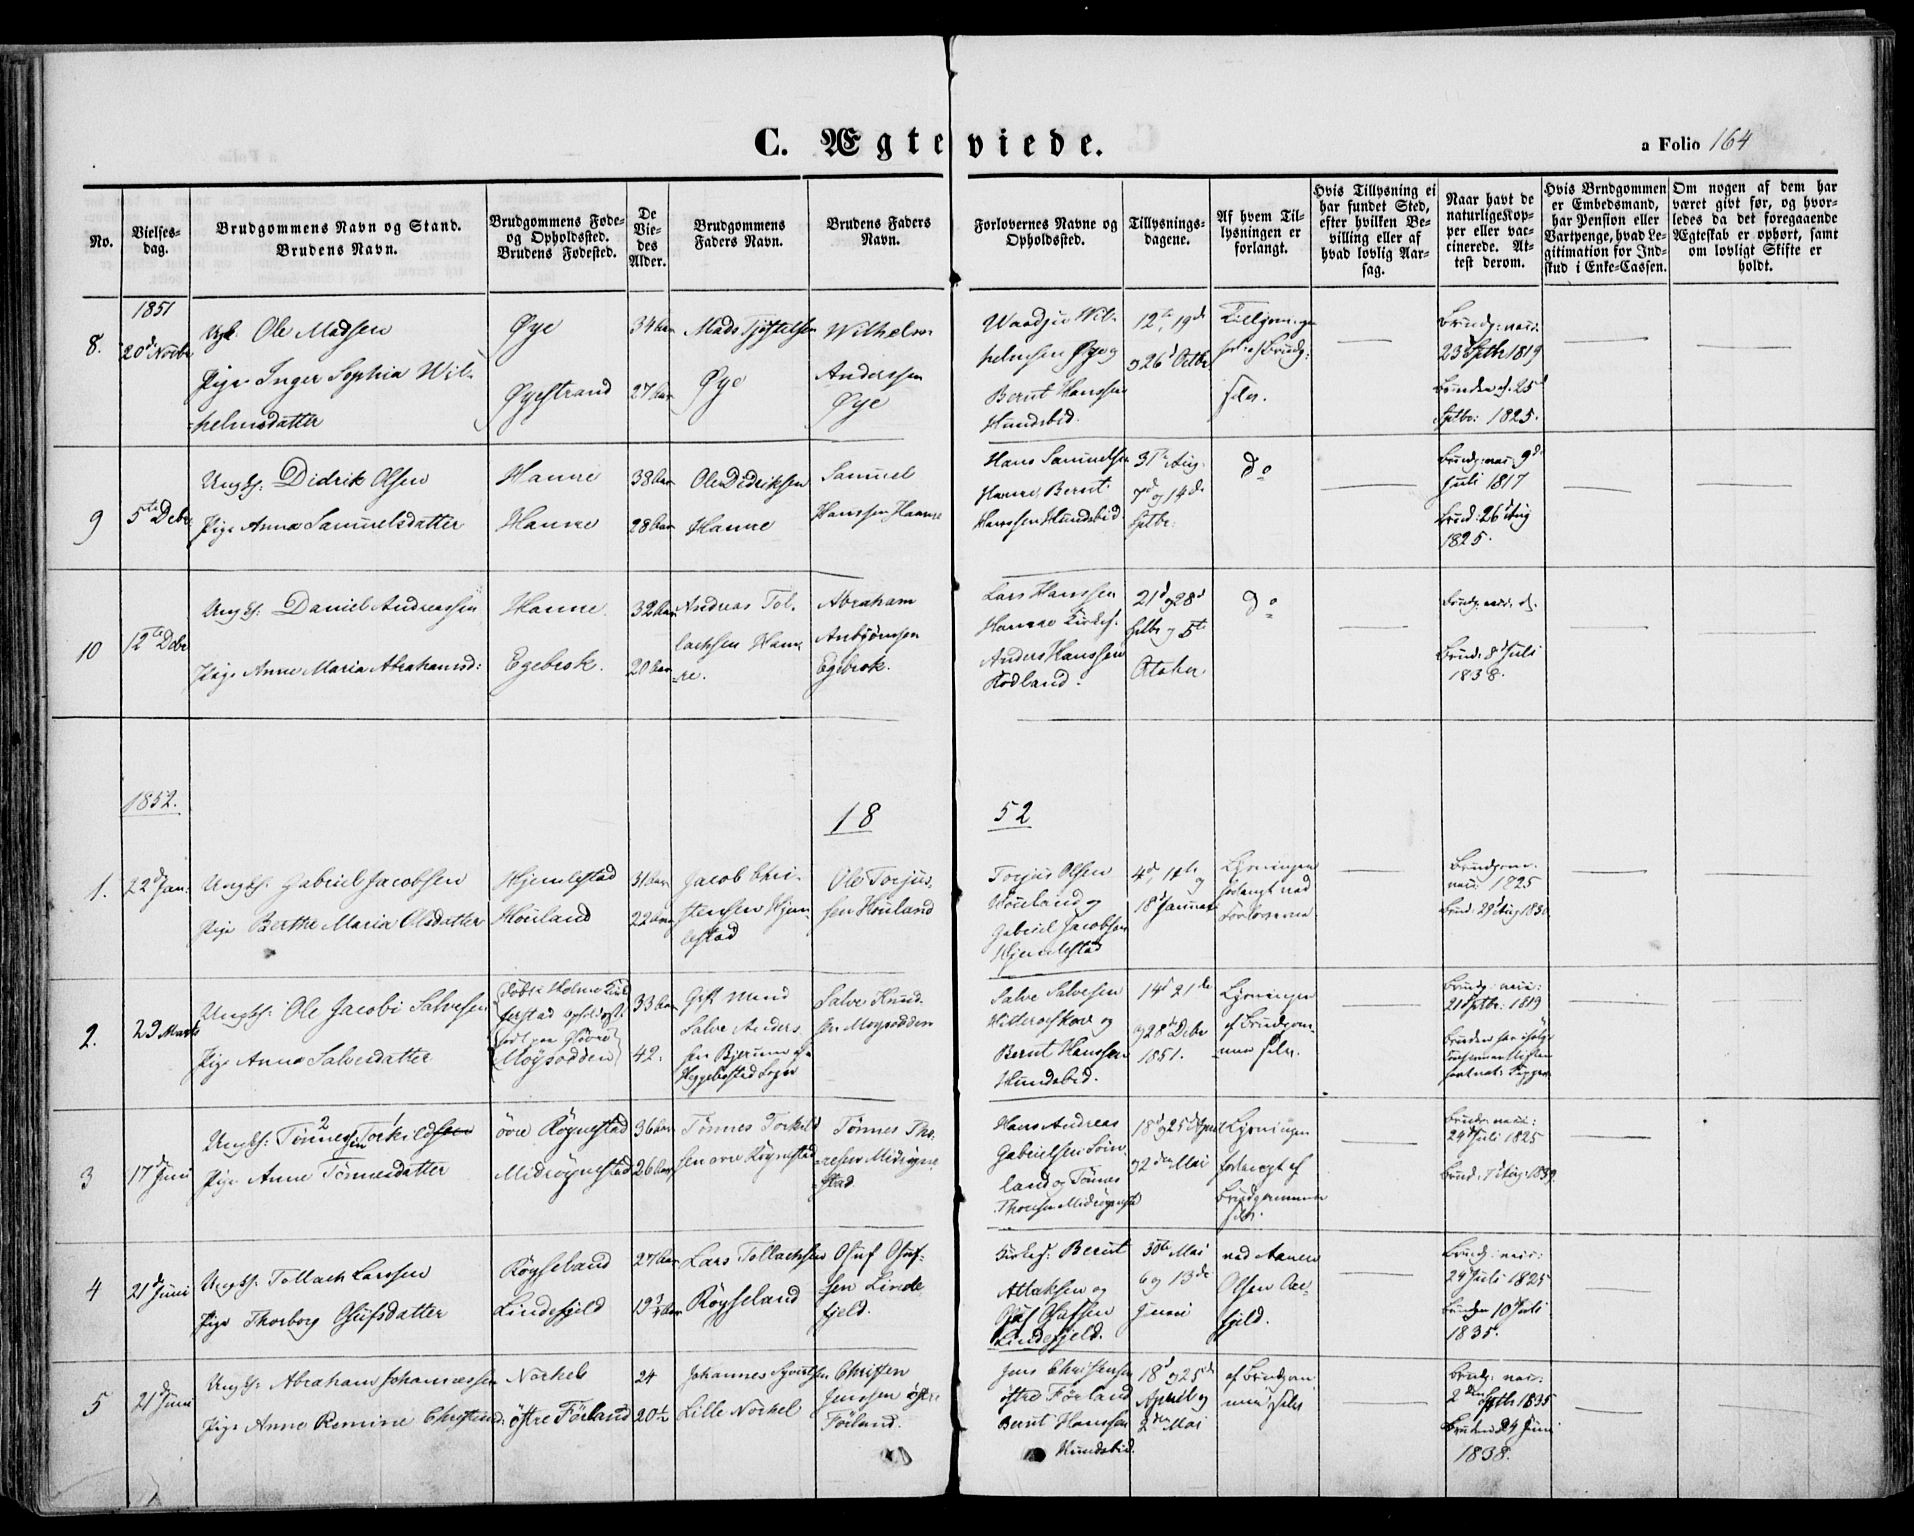 C. Ægteviede.
a Folio 164
No.
Vielses-
dag.
Brudgommens Navn og Stand.
Brudens Navn.
Brudgommens Føde-
og Opholdssted.
Brudens Fødested.
De
Vie-
des
Alder.
Brudgommens
Faders Navn.
Brudens Faders
Navn.
Forlovernes Navne og
Opholdssted.
Tillysnings-
dagene.
Af hvem Til-
lysningen er
forlangt.
Hvis Tillysning ei
har fundet Sted,
efter hvilken Be-
villing eller af
hvad lovlig Aar-
sag.
Naar havt de
naturlige Kop-
per eller vac-
cinerede. At-
test derom.
Hvis Brudgommen
er Embedsmand,
har Pension eller
Vartpenge, hvad Le-
gitimation for Ind-
skud i Enke-Cassen.
Om nogen af dem har
været givt før, og hvor-
ledes da det foregaaende
Ægteskab er ophørt, samt
om lovligt Skifte er
holdt.
1851
8.
20d Novbr
Ole Madsen
Pige Inger Sophia Wil-
helmsdatter
Øye
Øyestrand
34 Aar
27 Aar
Mads
Øye
Wilhelm
Anderssen
Øye
Wil-
helmsen Øye og
Bernt Hanssen
Hundsbid.
12te, 19d
og 26d Octbr
selv.
Brudg: vac:
23d Septb 1819
Bruden d. 25d
Septbr: 1825.
9
5te Debr
Ungk: Didrik Olsen
Pige Anna Samuelsdatter
Hanne
Hanne
38 Aar
28 Aar
Ole Didriksen
Hanne
Samuel
Hanssen Haanne
Hans Samuelsen
Hanne, Bernt
Hanssen Hundsbid
31te Aug.
7d og 14de
Septbr:
do
Brudg: vac: 9d
Juli 1817
Brud: 26d Aug
1825.
10
12te Debr
Ungk: Daniel Andreassen
Pige Anne Maria Abrahamsd:
Hanne
Egebrok.
32 Aar
20 Aar
Andreas Tol-
lachsen Han-
ne.
Abraham
Anbjørnsen
Egebrok.
Lars Hanssen
Hanne
Anders Hanssen
Rodland.
21d og 28d
Septbr og 5te
Octobr.
do
Brud: 8d Juli
1838.
1852.
18 52
1.
22d Jan:
Ungk: Gabriel Jacobsen
Pige Berthe Maria Olsdatter
Hjemlestad
Houland
31 Aar
22 Aar
Jacob Chri-
stensen Hjem-
lestad
Ole Torjus-
sen Houland
Torjus Olsen
Houland og
Gabriel Jacobsen
Hjemlestad
4d, 11te og
18d Januar
Lysningen
forlangt ved
Forloverne
Brudgom:
vac: 1825
Brud: 29d Aug 1830
2.
29 Marts
Ungk: Ole Jacob Salvesen
Pige Anna Salvesdatter
Møysodden
33 Aar
42.
Gift Mand
Salve Anders-
sen Bjerum
Heggebostad Sogn
Salve Knud-
sen Moysodden
Salve Salvesen
og
Bernt Hanssen
Hundsbid.
14d 21de
og 28de Debr
1851.
Lysningen
af Brudgom-
men selv.
Brudg: vac:
21d Septbr: 1819
Bruden har
3
17d Juni
Ungk: Tønnes Torkildsen
2
sen
Pige Anne Tønnesdatter
øvre Røgnestad
Midrøgnestad
36 Aar
26 Aar
Tønnes Torkild-
sen øvre Røgnestad
Tønnes Tho-
resen Midrøgne-
stad
Hans Andreas
Gabrielsen
land og Tønnes
Thoresen Midrøgnestd
18d og 25d April
og 2den Mai
Lysningen
forlangt af
Brudgommen
selv.
Brudg: vac:
29d Juli 1825
Brud: 1d Aug: 1839
4
21d Juni
Ungk: Tollach Larssen
Pige Thorborg Osufsdatter
Røyseland
Lindefjeld
27 Aar
Lars Tollachsen
Røyseland
Osuf Osuf-
sen Linde-
fjeld.
Bernt
Attaksen og
Lindefjeld.
30te Mai
6 og 13de
Juni
ved Aanen
Olsen Aae-
fjeld.
Brudg: vac:
24d Juli 1825
Bruden 10d Juli
1835.
5
21d Juni
Ungk: Abraham Johannessen
Pige Anne Romine Christensd:
Nørkel
østre Förland
24
20½
Johannes Syvertsen
Lille Nørkel
Christen
Jenssen østre
Förland.
Jens Christensen
østre Förland
Bernt Hanssen
Hundsbid.
18d og 25de
April og
2den Mai
af Brudgom-
men selv
Brudg: vac:
2den Septb 1835
Bruden 24 Juni
1838.